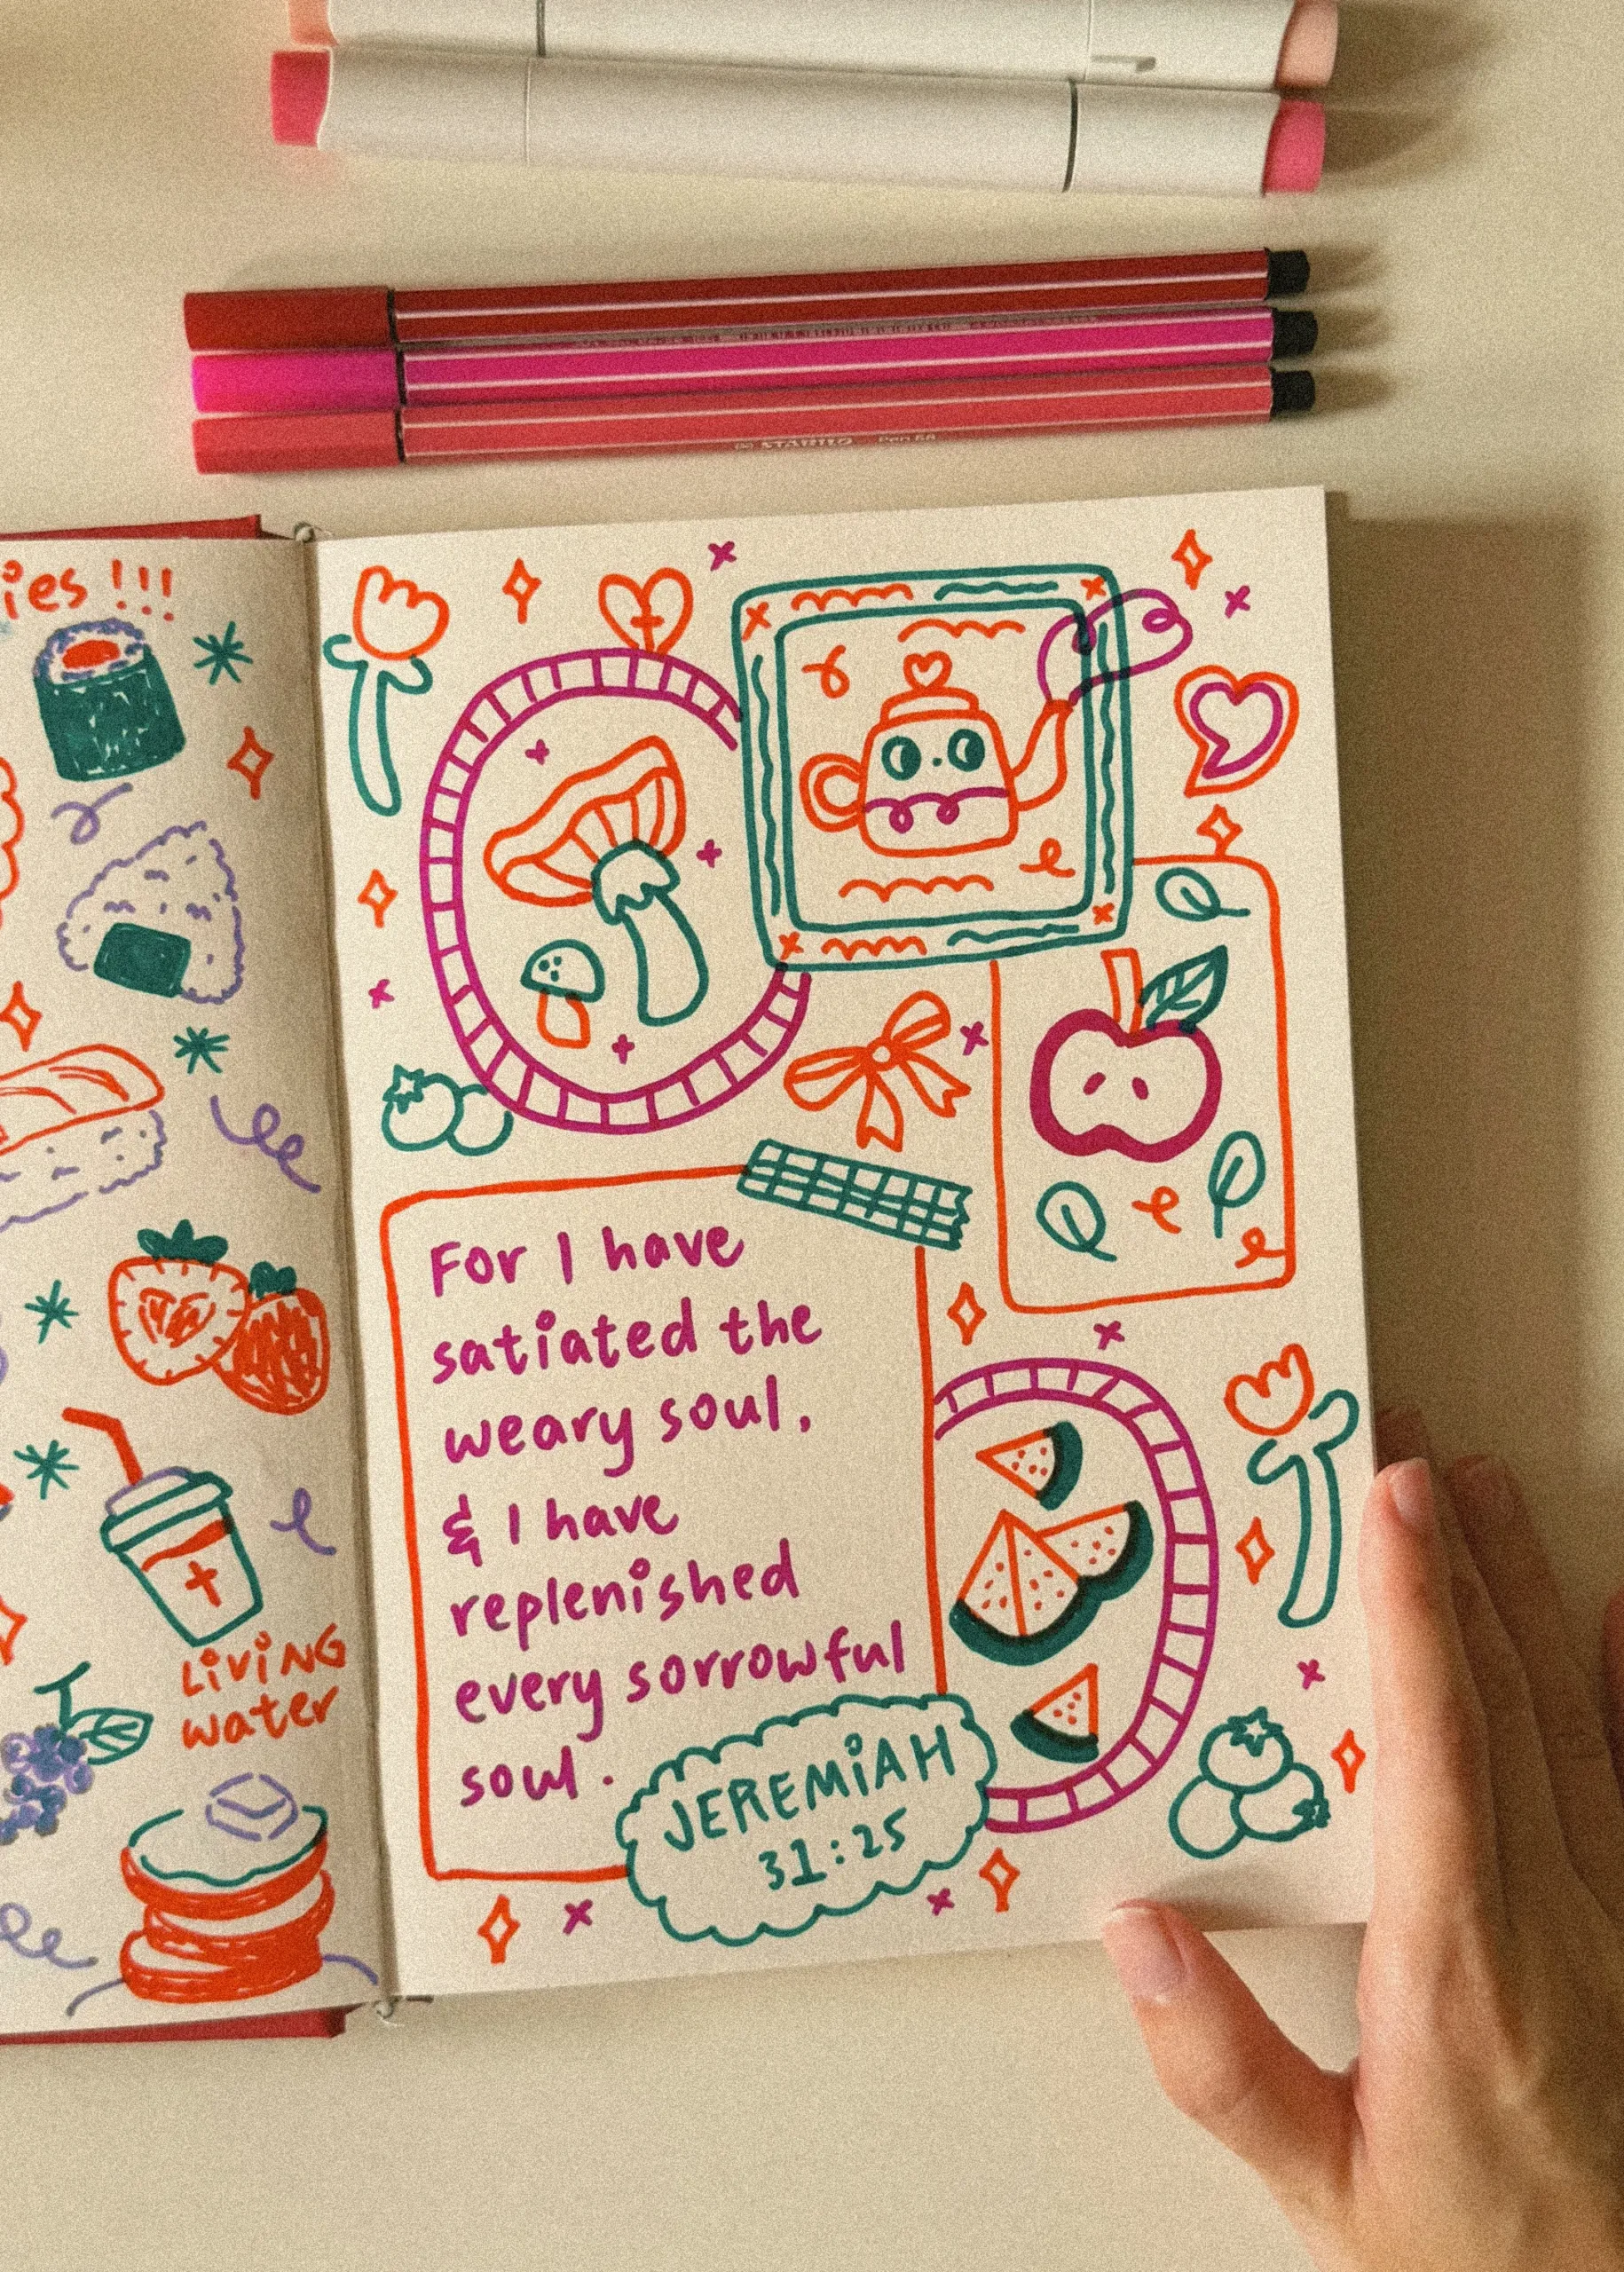 STABILO Pen 68
ies!!!
Living
water
For I have
satiated the
weary soul,
& I have
replenished
every sorrowful
soul.
JEREMiAH
31:25